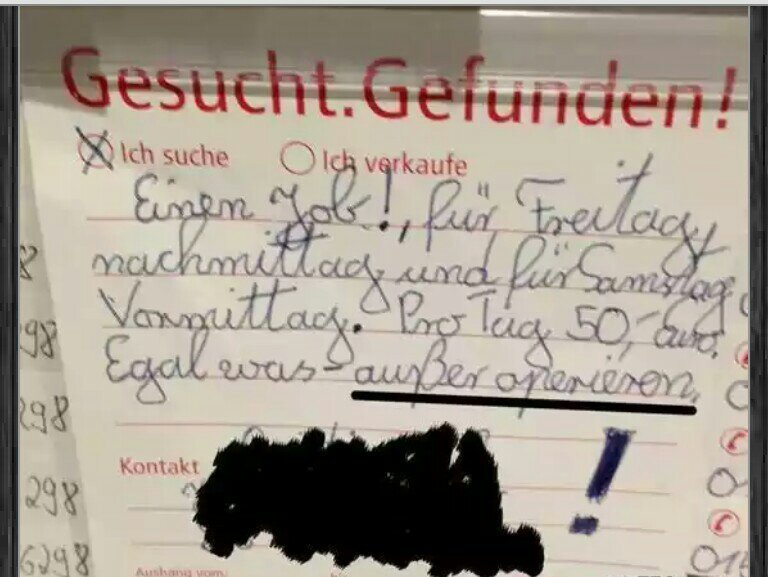 Gesucht.Gefunden!
Ich suche Ich verkaufe
Einen Job!, für Freitag,
nachmittag und für Samstag
Vormittag. Pro Tag 50,- Euro.
Egal was - außer operieren.
!
Kontakt
Aushang vom:
8
98
298
298
6298